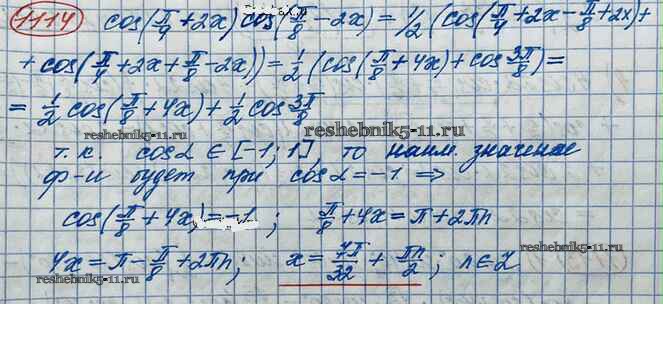 1114 cos(π/4 + 2x) cos(π/8 - 2x) = 1/2 (cos(π/4 + 2x - π/8 + 2x) +
+ cos(π/4 + 2x + π/8 - 2x)) = 1/2 (cos(π/8 + 4x) + cos 3π/8) =
= 1/2 cos(π/8 + 4x) + 1/2 cos 3π/8
reshebnik5-11.ru
reshebnik5-11.ru
т.к. cosα ∈ [-1; 1], то наим. значение
ф-и будет при cosα = -1 ⇒
cos(π/8 + 4x) = -1; π/8 + 4x = π + 2πn
reshebnik5-11.ru
4x = π - π/8 + 2πn; x = 7π/32 + πn/2; n ∈ Z
reshebnik5-11.ru